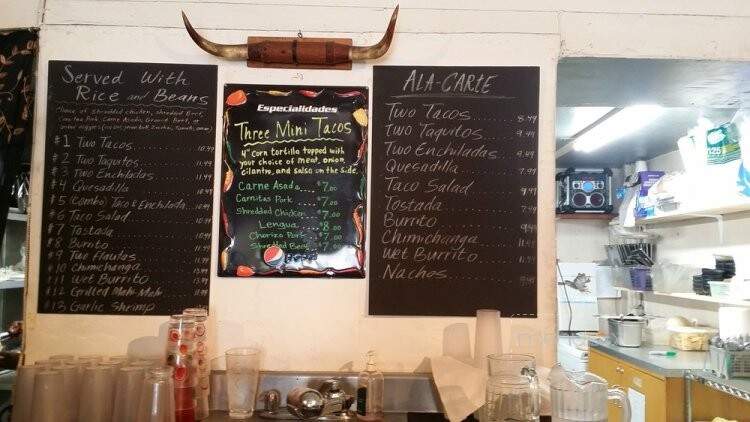 Served With
Rice and Beans
choice of shredded chicken, shredded Beef,
Carnitas Pork, Carne Asada, Ground Beef, or
#1 Two Tacos 10.99
#2 Two Taquitos 11.99
#3 Two Enchiladas 11.99
#4 Quesadilla 10.99
#5 (combo) Taco & Enchilada
#6 Taco Salad
#7 Tostada 10.99
#8 Burrito 11.99
#9 Two Flautas 11.99
#10 Chimichanga
#11 Wet Burrito 13.99
#12 Grilled Mahi-Mahi
#13 Garlic Shrimp
Especialidades
Three Mini Tacos
4" corn tortilla topped with
your choice of meat, onion,
cilantro, and salsa on the side.
Carne Asada $7.00
Carnitas Pork $7.00
Shredded Chicken $7.00
Lengua $8.00
Chorizo Pork $7.00
Shredded Beef $7.00
pepsi
ALA-CARTE
Two Tacos 8.49
Two Taquitos 9.49
Two Enchiladas 9.49
Quesadilla 7.99
Taco Salad 9.99
Tostada 7.49
Burrito 9.49
Chimichanga 11.49
Wet Burrito 11.49
Nachos